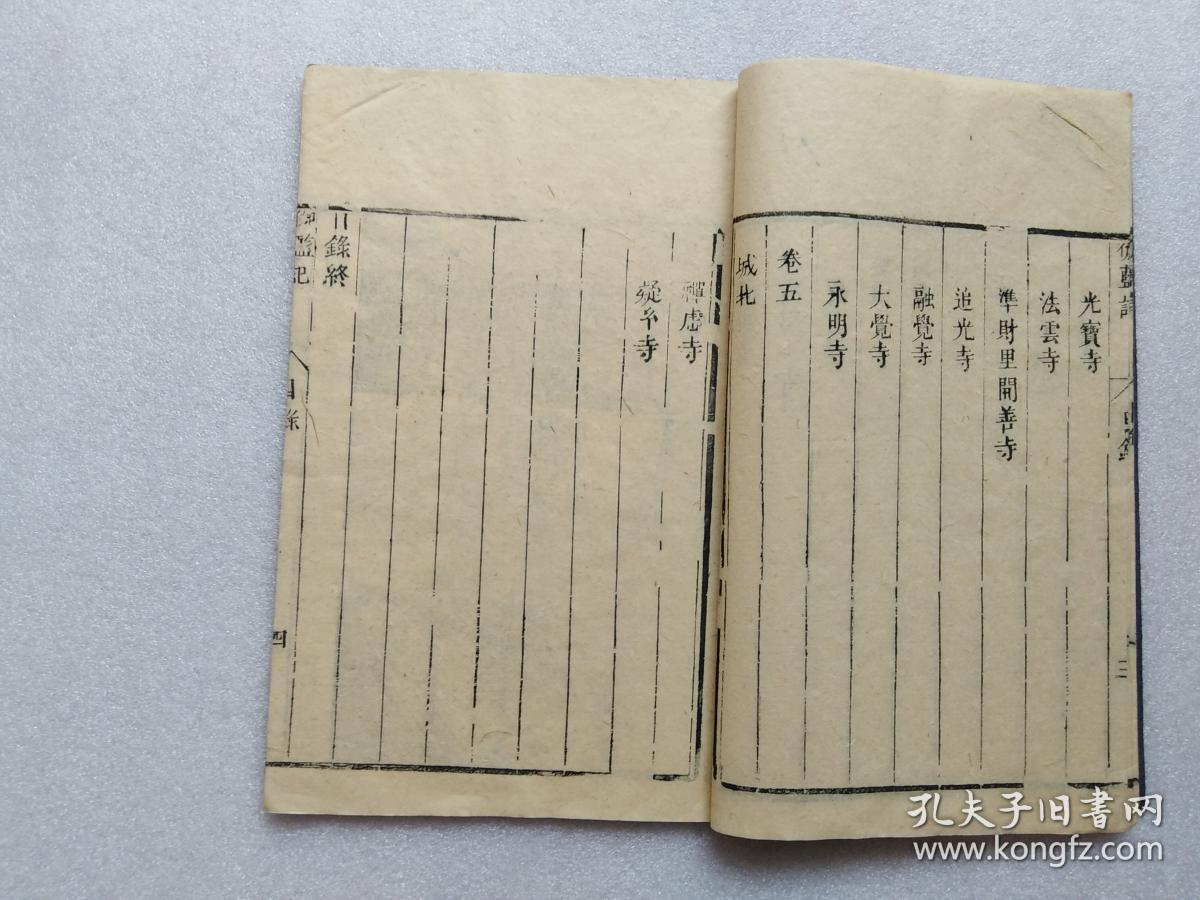 光寶寺
法雲寺
準財里開善寺
追光寺
融覺寺
大覺寺
永明寺
卷五
城北
三
禪虛寺
寺
目錄終
伽藍記
目錄
四
孔夫子旧书网
www.kongfz.com